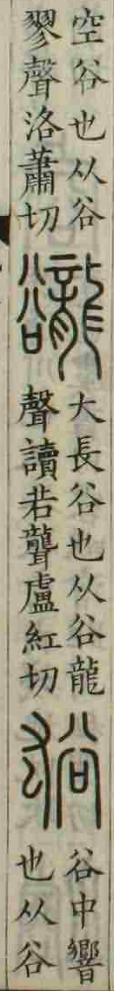 空谷也从谷
翏聲洛蕭切
豅
大長谷也从谷龍
聲讀若聾盧紅切
谹
谷中響
也从谷